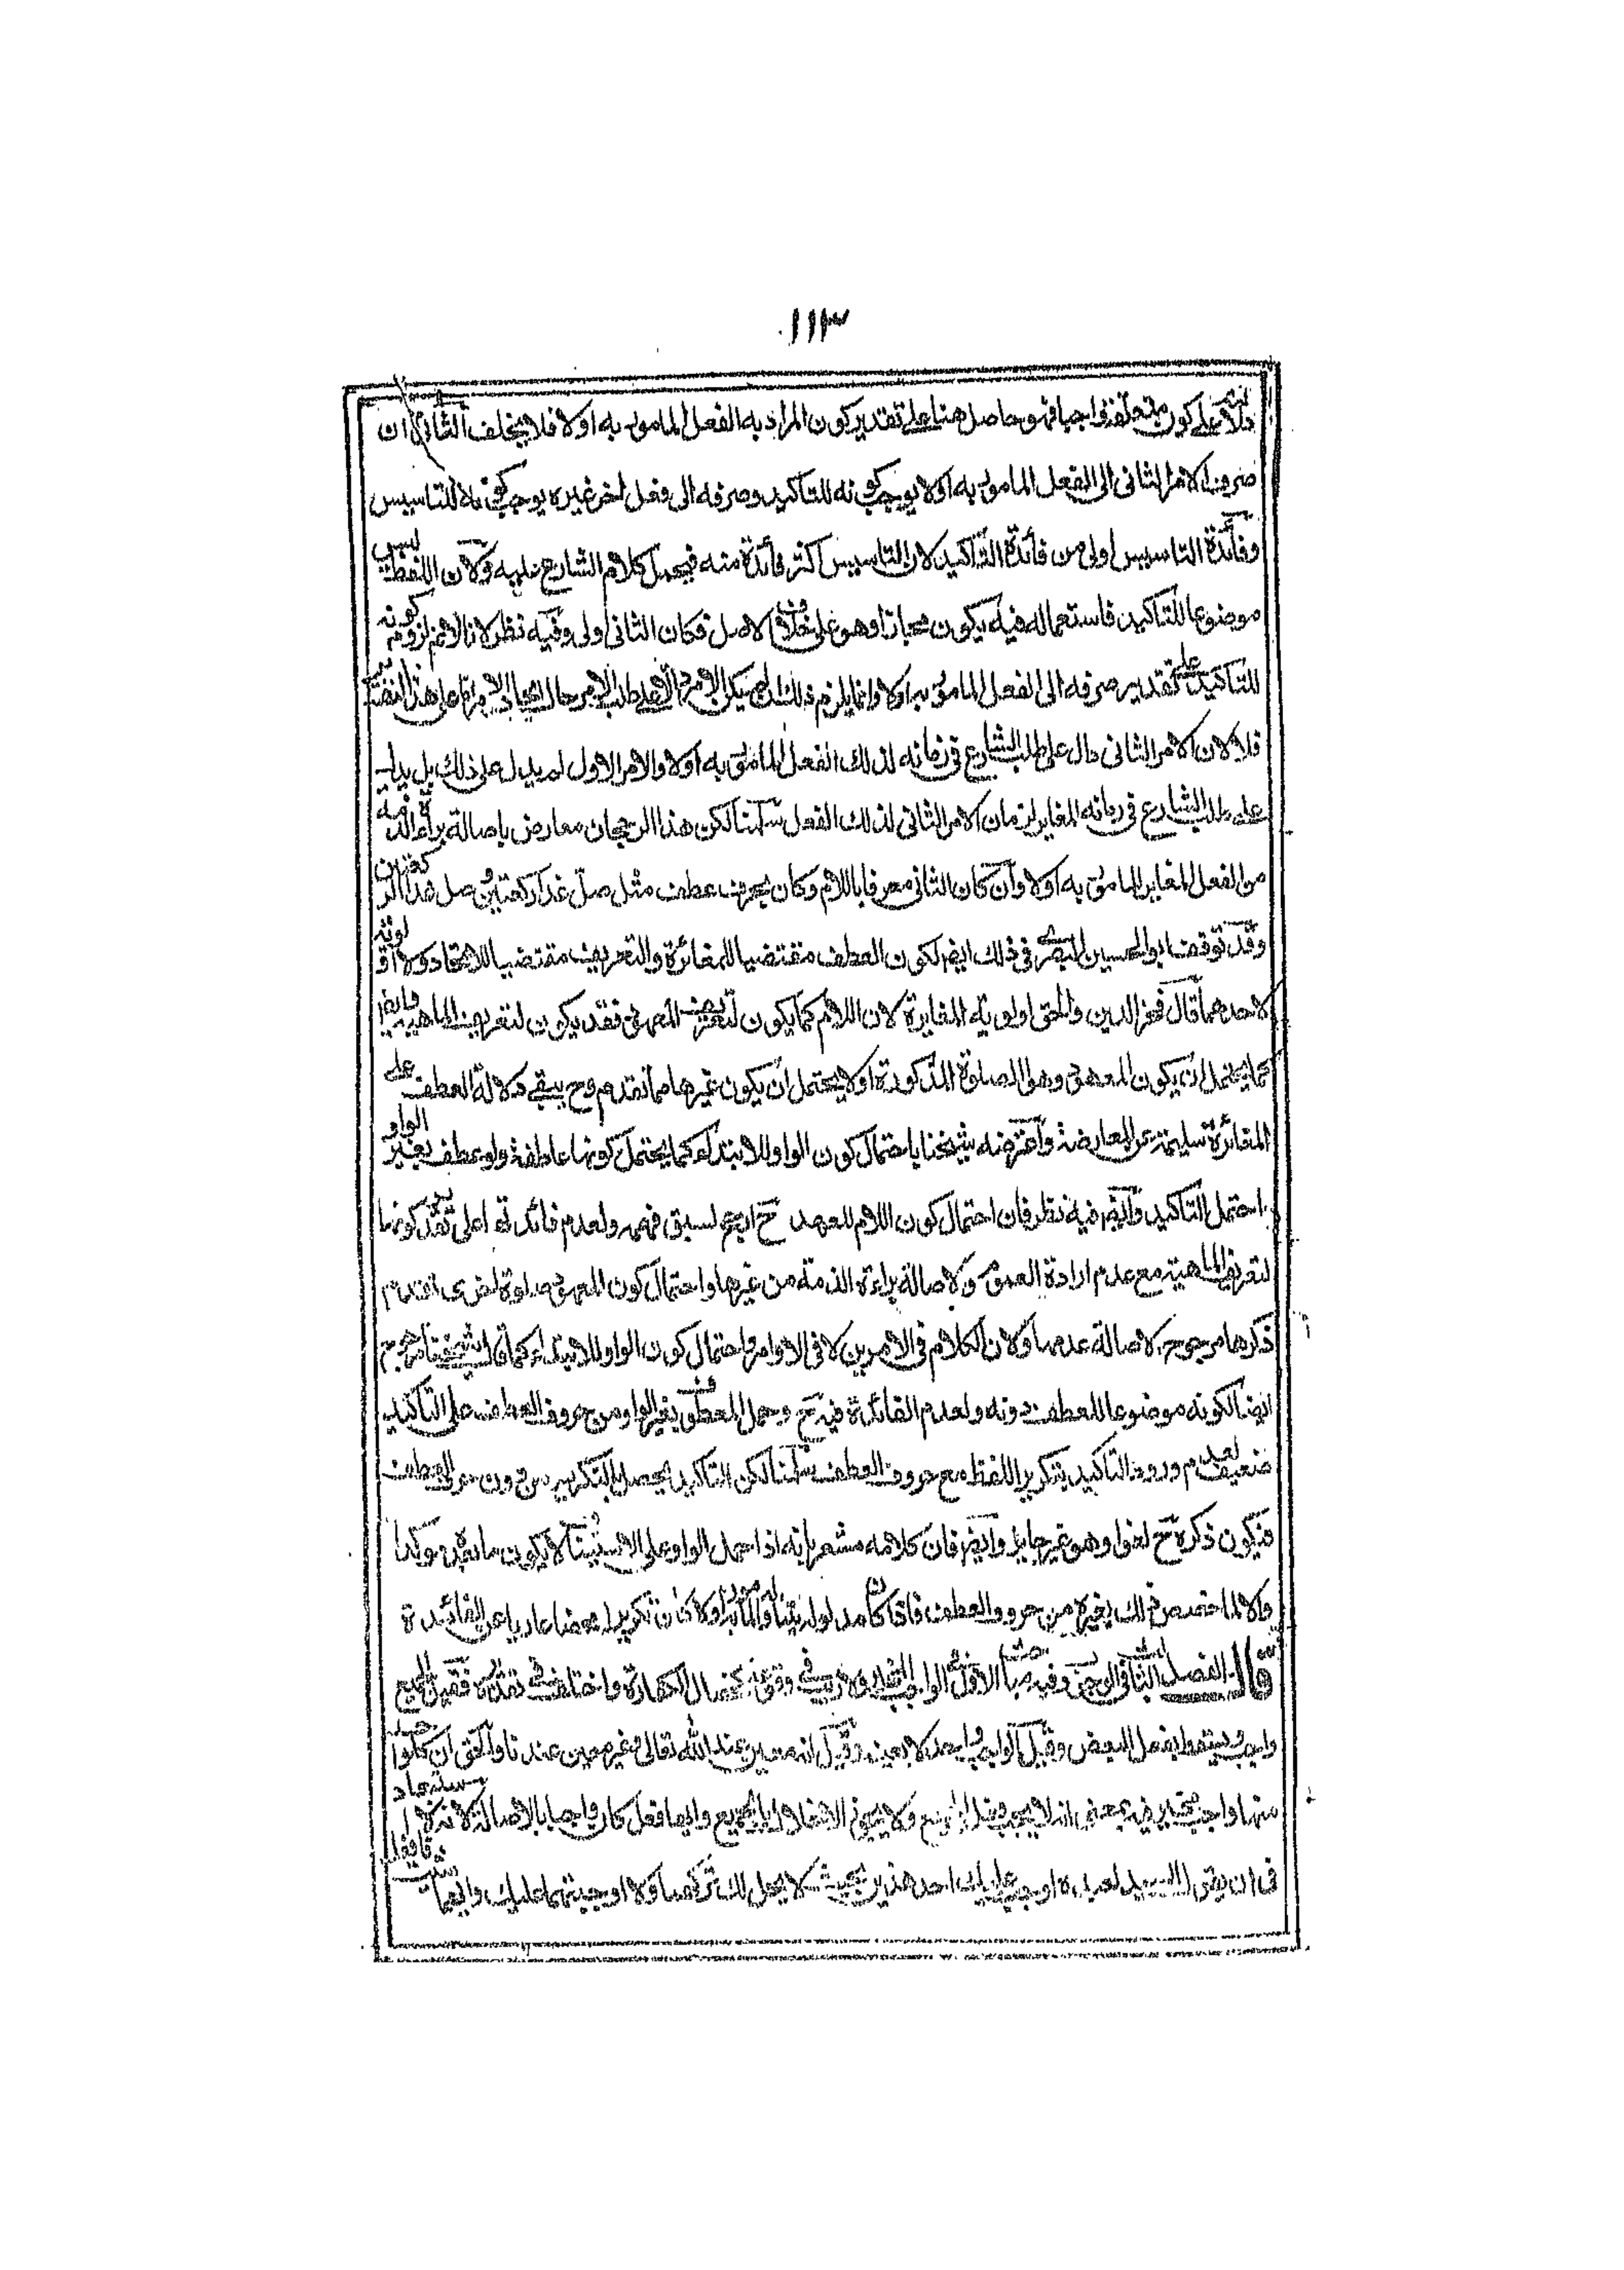 ١١٣
دلالته على كون متعلقه واجبا فهو حاصل هنا على تقدير كون المراد به الفعل المامور به اولا فلا يخلف الثانى ان
صرف الامر الثانى الى الفعل المامور به اولا يوجب كونه للتاكيد وصرفه الى فعل اخر غيره يوجب كونه للتاسيس
وفائدة التاسيس اولى من فائدة التاكيد لان التاسيس اكثر فائدة منه فيحمل كلام الشارع عليه ولان اللفظ ليس
موضوعا للتاكيد فاستعماله فيه يكون مجازا وهو على خلاف الاصل فكان الثانى اولى وفيه نظر لانا لانم لزوم كونه
للتاكيد على تقدير صرفه الى الفعل المامور به اولا وانما يلزم ذلك ان لو لم يكن الامر دالا على طلب الامر حال ايجاد الامر اما على هذا التقدير
فلا لان الامر الثانى دال على طلب الشارع فى زمانه لذلك الفعل المامور به اولا والامر الاول لم يدل على ذلك بل يدل
على طلب الشارع فى زمانه المغاير لزمان الامر الثانى لذلك الفعل سلمنا لكن هذا الرجحان معارض باصالة براءة الذمة
من الفعل المغاير المامور به اولا وان كان الثانى معرفا باللام وكان بحرف عطف مثل صل غدا ركعتين وصل هذا الركعتين
وقد توقف ابو الحسين البصرى فى ذلك ايضا لكون العطف مقتضيا للمغائرة والتعريف مقتضيا للاتحاد ولا اولوية
لاحدهما قال فخر الدين والحق اولوية المغايرة لان اللام كما يكون لتعريف المعهود فقد يكون لتعريف الماهية وايضا
كما يحتمل ان يكون المعهود وهو الصلوة المذكورة اولا يحتمل ان يكون غيرها مما تقدم وح يبقى دلالة العطف على
المغائرة سليمة عن المعارضة واعترضه شيخنا باحتمال كون الواو للابتداء كما يحتمل كونها عاطفة ولو عطف بغير الواو
احتمل التاكيد وايضا فيه نظر فان احتمال كون اللام للعهد ح ارجح لسبق فهمه ولعدم فائدته اعلى تقدير كونها
لتعريف الماهية مع عدم ارادة العموم ولاصالة براءة الذمة من غيرها واحتمال كون المعهود صلوة اخرى تقدم
ذكرها مرجوح لاصالة عدمها ولان الكلام فى الامرين لا فى الاوامر واحتمال كون الواو للابتداء كما قال شيخنا مرجوح
ايضا لكونه موضوعا للعطف دونه ولعدم الفائدة فيه ح وحمل المعطوف بغير الواو من حروف العطف على التاكيد
ضعيف لعدم ورود التاكيد بتكرير اللفظ مع حروف العطف سلمنا لكن التاكيد يحصل بالتكرير من دون حرف العطف
فيكون ذكره ح لغوا وهو غير جايز وايضا فان كلامه مشعر بانه اذا حمل الواو على الاستيناف لا يكون ما بعده موكدا
والا لما خصص ذلك بغيره من حروف العطف فاذا كان مدلوله المامور به اولا كان تكريرا محضا عاريا عن الفائدة
قال الفصل الثانى الوجوب وفيه مباحث الاول فى الواجب المخير ولا ريب فى وقوعه كخصال الكفارة واختلف فى تقديره فقيل الجميع
واجب ويسقط بفعل البعض وقيل الواجب واحد لا بعينه وقيل انه معين عند الله تعالى وغير معين عندنا والحق ان كل واحد
منها واجب مخير فيه بمعنى انه لا يجب فعل الجميع ولا يجوز الاخلال بالجميع وايها فعل كان واجبا بالاصالة لانه لا استبعاد
فى ان يقول السيد لعبده اوجبت عليك احد هذين بحيث لا يحل لك تركهما ولا اوجبتهما عليك وايهما شئت فافعل